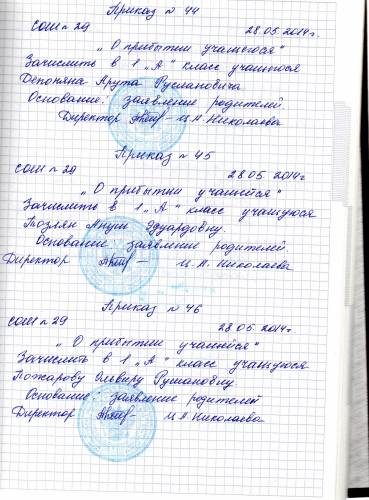 Приказ № 44
СОШ № 29 28.05.2014г.
„О прибытии учащегося"
Зачислить в 1 „А" класс учащегося
Депоняна Арута Руслановича
Основание: заявление родителей.
Директор И.А. Николаева
Приказ № 45
СОШ № 29 28.05.2014г
„О прибытии учащейся"
Зачислить в 1 „А" класс учащуюся
Позлян Анции Эдуардовну.
Основание заявление родителей.
Директор И.А. Николаева
Приказ № 46
СОШ № 29 28.05.2014г.
„О прибытии учащейся"
Зачислить в 1 „А" класс учащуюся
Пожарову Эльвиру Рушановну
Основание: заявление родителей
Директор И.А Николаева